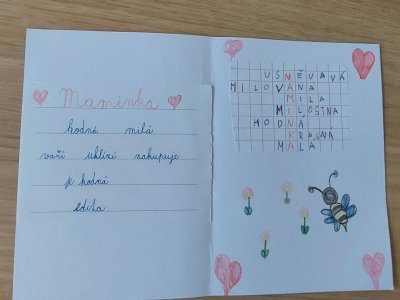 Maminka
hodná milá
vaří uklízí nakupuje
je hodná
USMĚVAVÁ
MILOVANÁ
MILA
MILOSTNA
HODNÁ
KRASNA
MALA